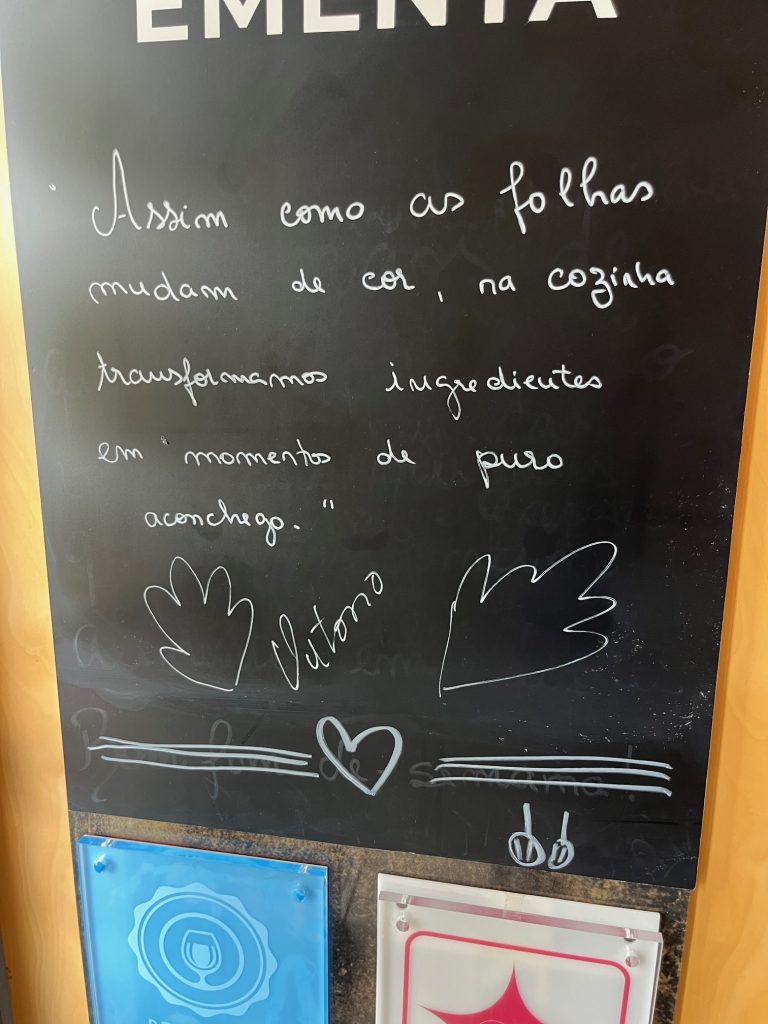 EMENTA
"Assim como as folhas
mudam de cor, na cozinha
transformamos ingredientes
em momentos de puro
aconchego."
Outono
Bom fim de semana!